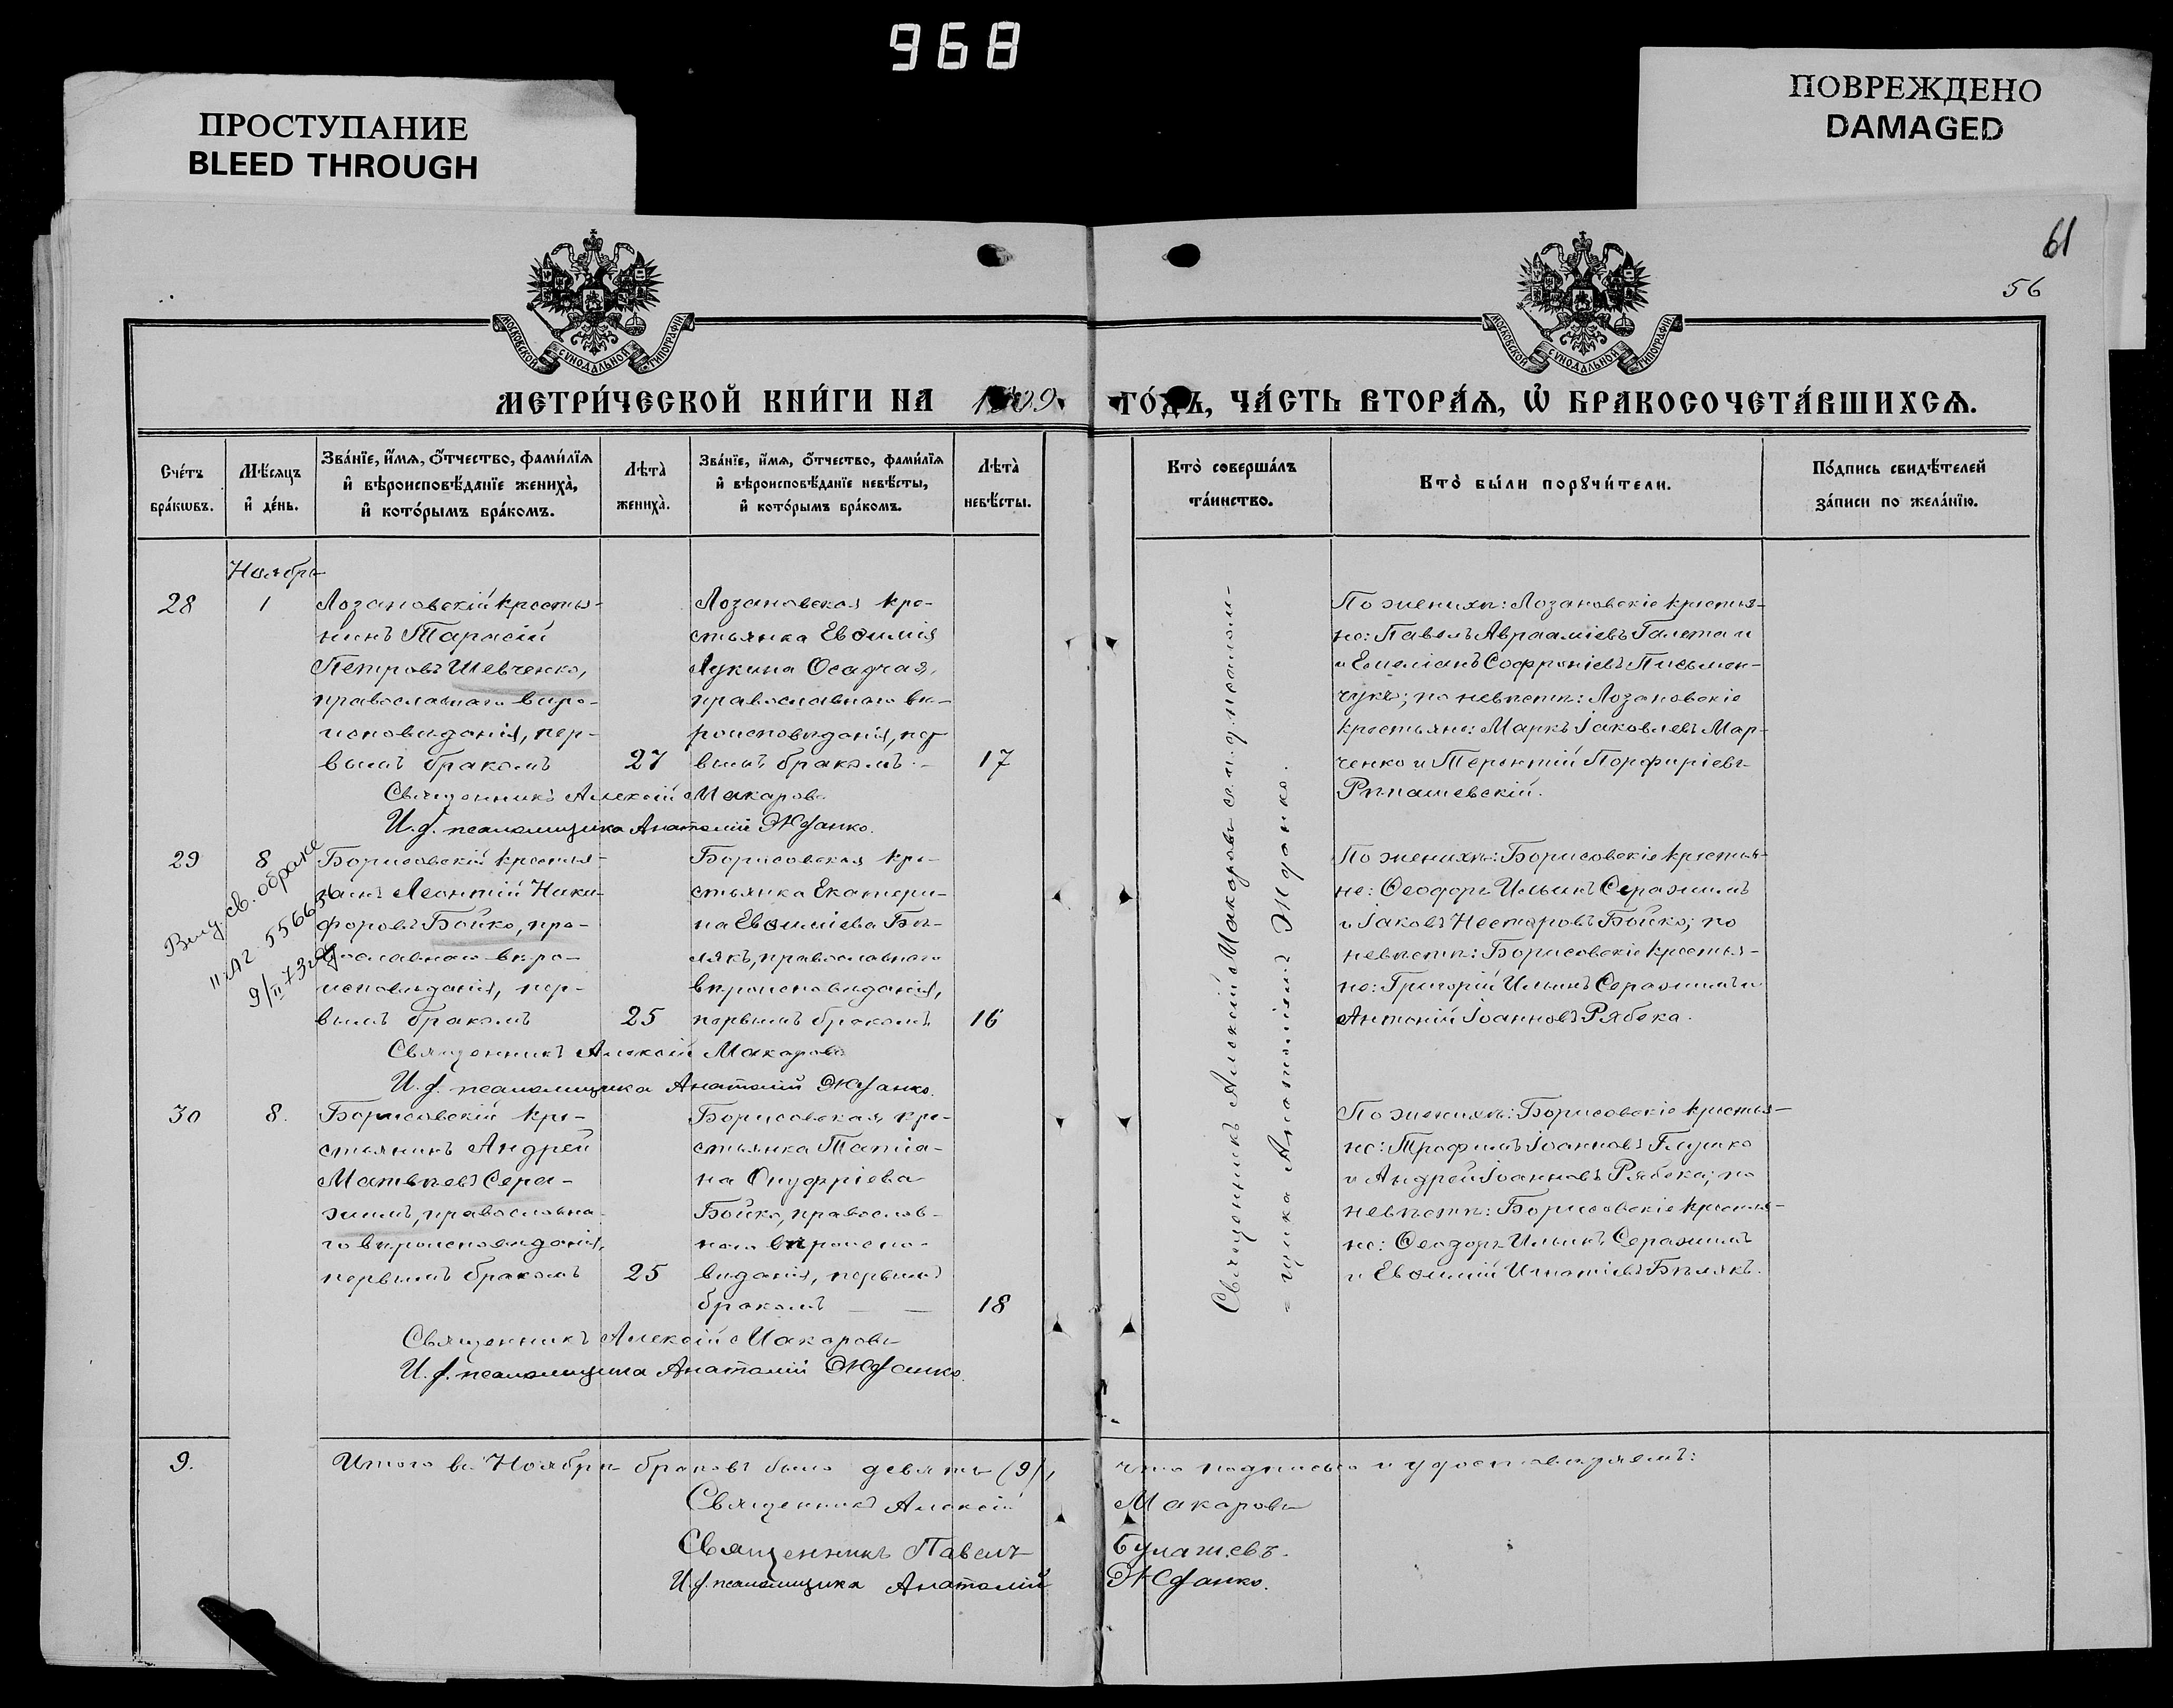 968
ПРОСТУПАНИЕ
BLEED THROUGH
ПОВРЕЖДЕНО
DAMAGED
61
56
МОСКОВСКОЙ СУНОДАЛЬНОЙ ТИПОГРАФІИ
МОСКОВСКОЙ СУНОДАЛЬНОЙ ТИПОГРАФІИ
МЕТРИ́ЧЕСКОЙ КНИ́ГИ НА 1909 ГО́ДЪ, ЧА́СТЬ ВТОРА́Ѧ, Ѽ БРАКОСОЧЕТА́ВШИХСѦ.
Сче́тъ
бра́кѡвъ.
Мѣ́сяцъ
и҆ де́нь.
Зва́нїе, и҆́мѧ, ѻ҆́тчество, фами́лїѧ
и҆ вѣроисповѣ́данїе жениха̀,
и҆ кото́рымъ бра́комъ.
Лѣта̀
жениха̀.
Зва́нїе, и҆́мѧ, ѻ҆́тчество, фами́лїѧ
и҆ вѣроисповѣ́данїе невѣ́сты,
и҆ кото́рымъ бра́комъ.
Лѣта̀
невѣ́сты.
Кто̀ соверша́лъ
та́инство.
Кто̀ бы́ли порꙋчи́тели.
По́дпись свидѣ́телей
за́писи по жела́нїю.
Ноябрь
28
1
Лозановскій крестья-
нинъ Тарасій
Петровъ Шевченко,
православнаго вѣро-
исповѣданія, пер-
вымъ бракомъ
27
Лозановская кре-
стьянка Евѳимія
Лукина Осадчая,
православнаго вѣ-
роисповѣданія, пер
вымъ бракомъ. -
17
Священникъ Алексій Макаровъ
И. д. псаломщика Анатолій Жданко.
По женихѣ: Лозановскіе крестья-
не: Павелъ Авраамиевъ Галета и
и Емеліанъ Софроніевъ Письмен-
чукъ; по невѣстѣ: Лозановскіе
крестьяне: Маркъ Іаковлевъ Мар-
ченко и Терентій Порфиріевъ
Рѣпашевскій.
29
8
Выд. св. о браке
II-АГ 556656
9/II 73 г.
Борисовскій крестья-
нинъ Леонтій Ники-
форовъ Бойко, пра-
вославнаго вѣро-
исповѣданія, пер-
вымъ бракомъ
25
Борисовская кре-
стьянка Екатери-
на Евѳиміева Бѣ-
лякъ, православнаго
вѣроисповѣданія,
первымъ бракомъ
16
Священникъ Алексій Макаровъ
И. д. псаломщика Анатолій Жданко.
По женихѣ: Борисовскіе крестья-
не: Ѳеодоръ Ильинъ Серажимъ
и Іаковъ Несторовъ Бойко; по
невѣстѣ: Борисовскіе крестья-
не: Григорій Ильинъ Серажимъ и
Антоній Іоанновъ Рябека.
30
8.
Борисовскій кре-
стьянинъ Андрей
Матвѣевъ Сера-
жимъ, православна-
го вѣроисповѣданія,
первымъ бракомъ
25
Борисовская кре-
стьянка Татіа-
на Онуфріева
Бойко, православ-
наго вѣроиспо-
вѣданія, первымъ
бракомъ — —
18
Священникъ Алексій Макаровъ
И. д. псаломщика Анатолій Жданко.
По женихѣ: Борисовскіе крестья-
не: Трофимъ Іоанновъ Глушко
и Андрей Іоанновъ Рябека; по
невѣстѣ: Борисовскіе крестья-
не: Ѳеодоръ Ильинъ Серажимъ
и Евѳимій Игнатіевъ Бѣлякъ.
Священникъ Алексій Макаровъ съ и. д. псалом-
= щика Анатоліемъ Жданко.
9.
Итого въ Ноябрѣ браковъ было девять (9), что подписью и удостовѣряемъ:
Священникъ Алексій Макаровъ
Священникъ Павелъ Булашевъ.
И. д. псаломщика Анатолій Жданко.